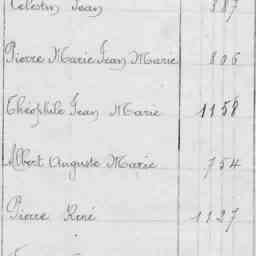 Célestin Jean 887
Pierre Marie Jean Marie 806
Théophile Jean Marie 1158
Albert Auguste Marie 754
Pierre René 1127